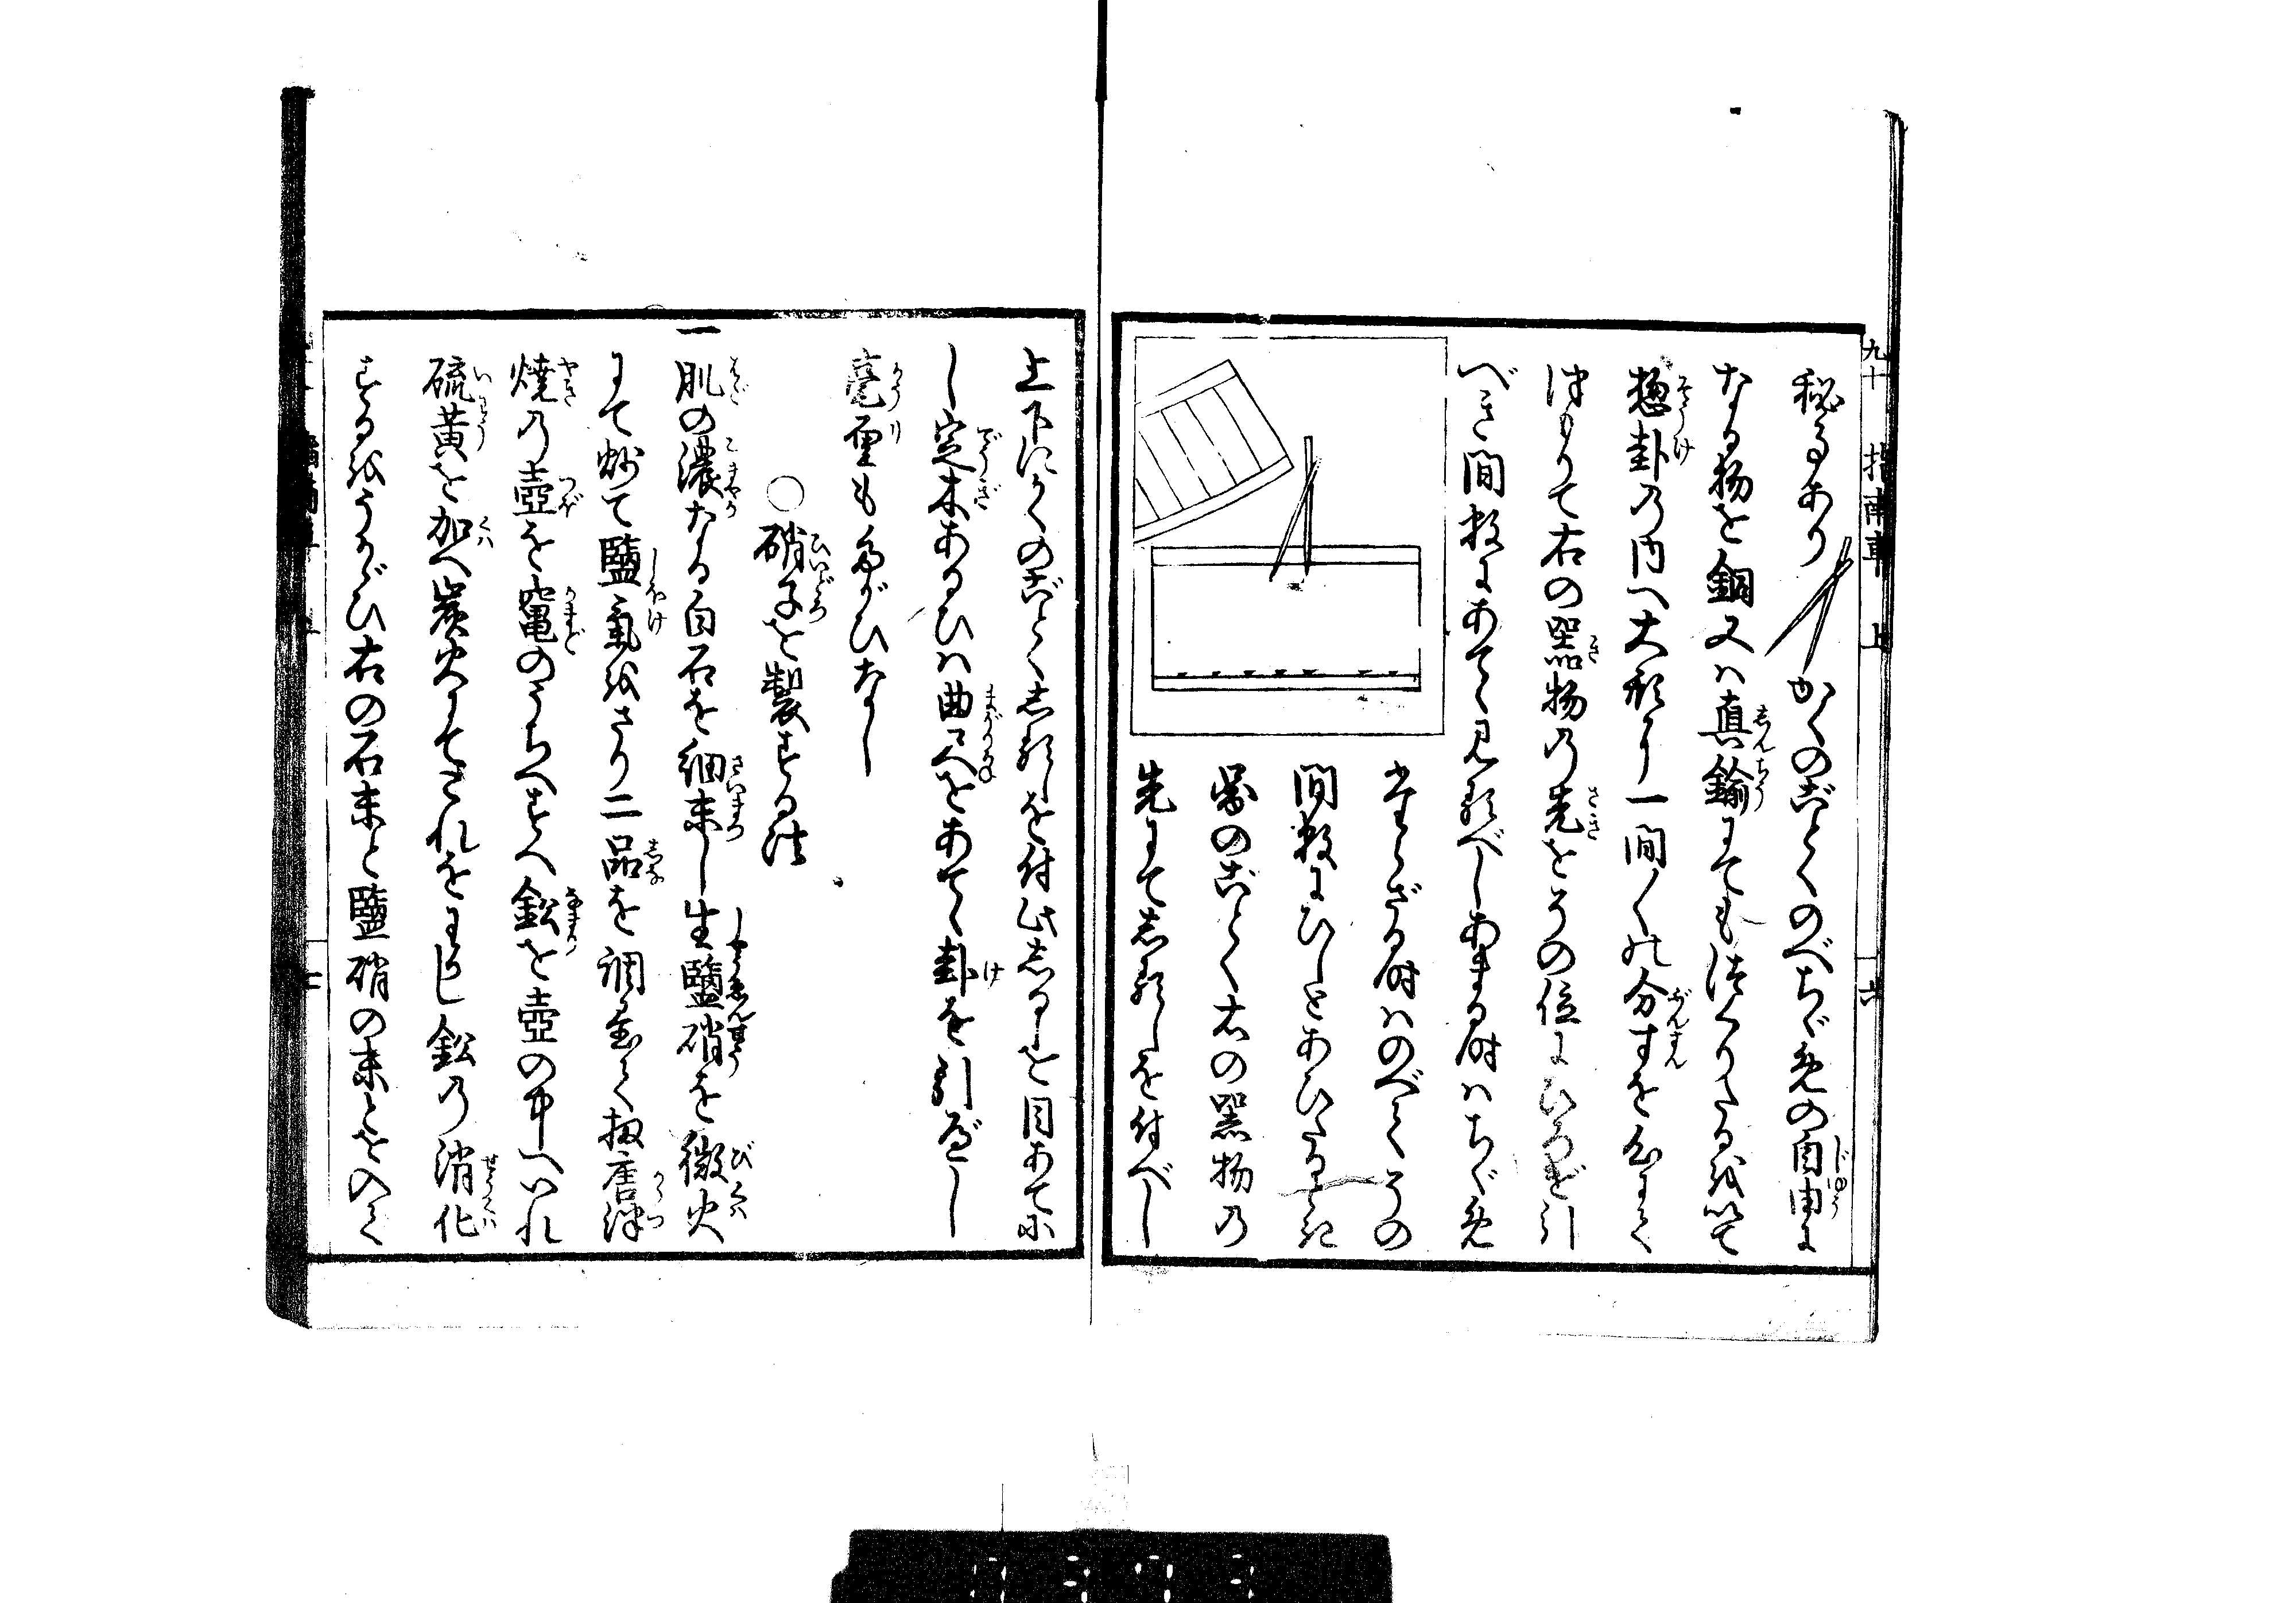 秘事あり かくのごとくのべちゞめの自由に
なる物を銅又ハ真鍮にても注くりたるを以て
惣卦の内へ大形に一間〳〵の分すを
右の器物の先をその位にひらき引
べき間数にあてゝ見るべしあまる時ハちゞめ
たらざる時ハのべてその
間数にひしとあひたるとき
図のごとく右の器物の
先にて志るしを付べし
上下にかくのごとく志るしを付此志るしを目あてに
し定木あるひハ曲尺をあてゝ卦を引べし
毫厘もたがひなし
○硝子を製する法
一肌の濃なる白石を細末し生鹽硝を微火
にて炒て鹽氣をさり二品を調合して扨唐津
焼の壺を竈のうちへすへ鉛を壺の中へいれ
硫黄を加へ炭火にてこれをわかし鉛の消化
するをうかゞひ右の石末と鹽硝の末とを入て
九十 指南車 上 六